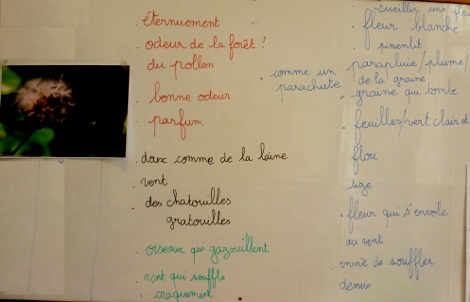 . éternuement
. odeur de la forêt ?
du pollen
. bonne odeur
. parfum
. doux comme de la laine
. vent
. des chatouilles
gratouilles
. oiseaux qui gazouillent
. vent qui souffle
craquement
. comme un
parachute
cueillir une
. fleur blanche
pissenlit
parapluie/plume/
de la graine
. graine qui tombe
. feuilles/vert clair et
. flou
. tige
. fleur qui s'envole
au vent
envie de souffler
dessus